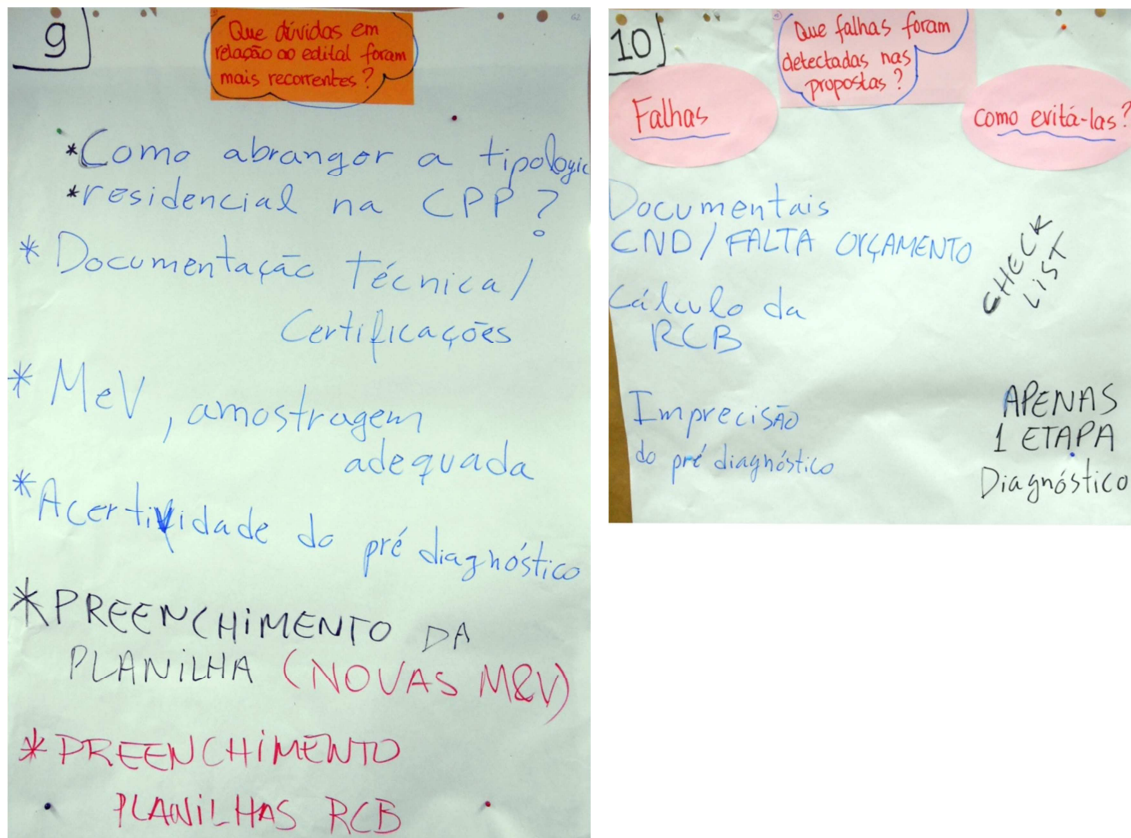 9
Que dúvidas em
relação ao edital foram
mais recorrentes?
*Como abranger a tipologia
*residencial na CPP?
* Documentação Técnica/
Certificações
* MeV, amostragem
adequada
*Acertividade do pré diagnóstico
*PREENCHIMENTO DA
PLANILHA (NOVAS M&V)
* PREENCHIMENTO
PLANILHAS RCB
10
Que falhas foram
detectadas nas
propostas?
Falhas
como evitá-las?
Documentais
CND/FALTA ORÇAMENTO
CHECK
LIST
Cálculo da
RCB
Imprecisão
do pré diagnóstico
APENAS
1 ETAPA
Diagnóstico